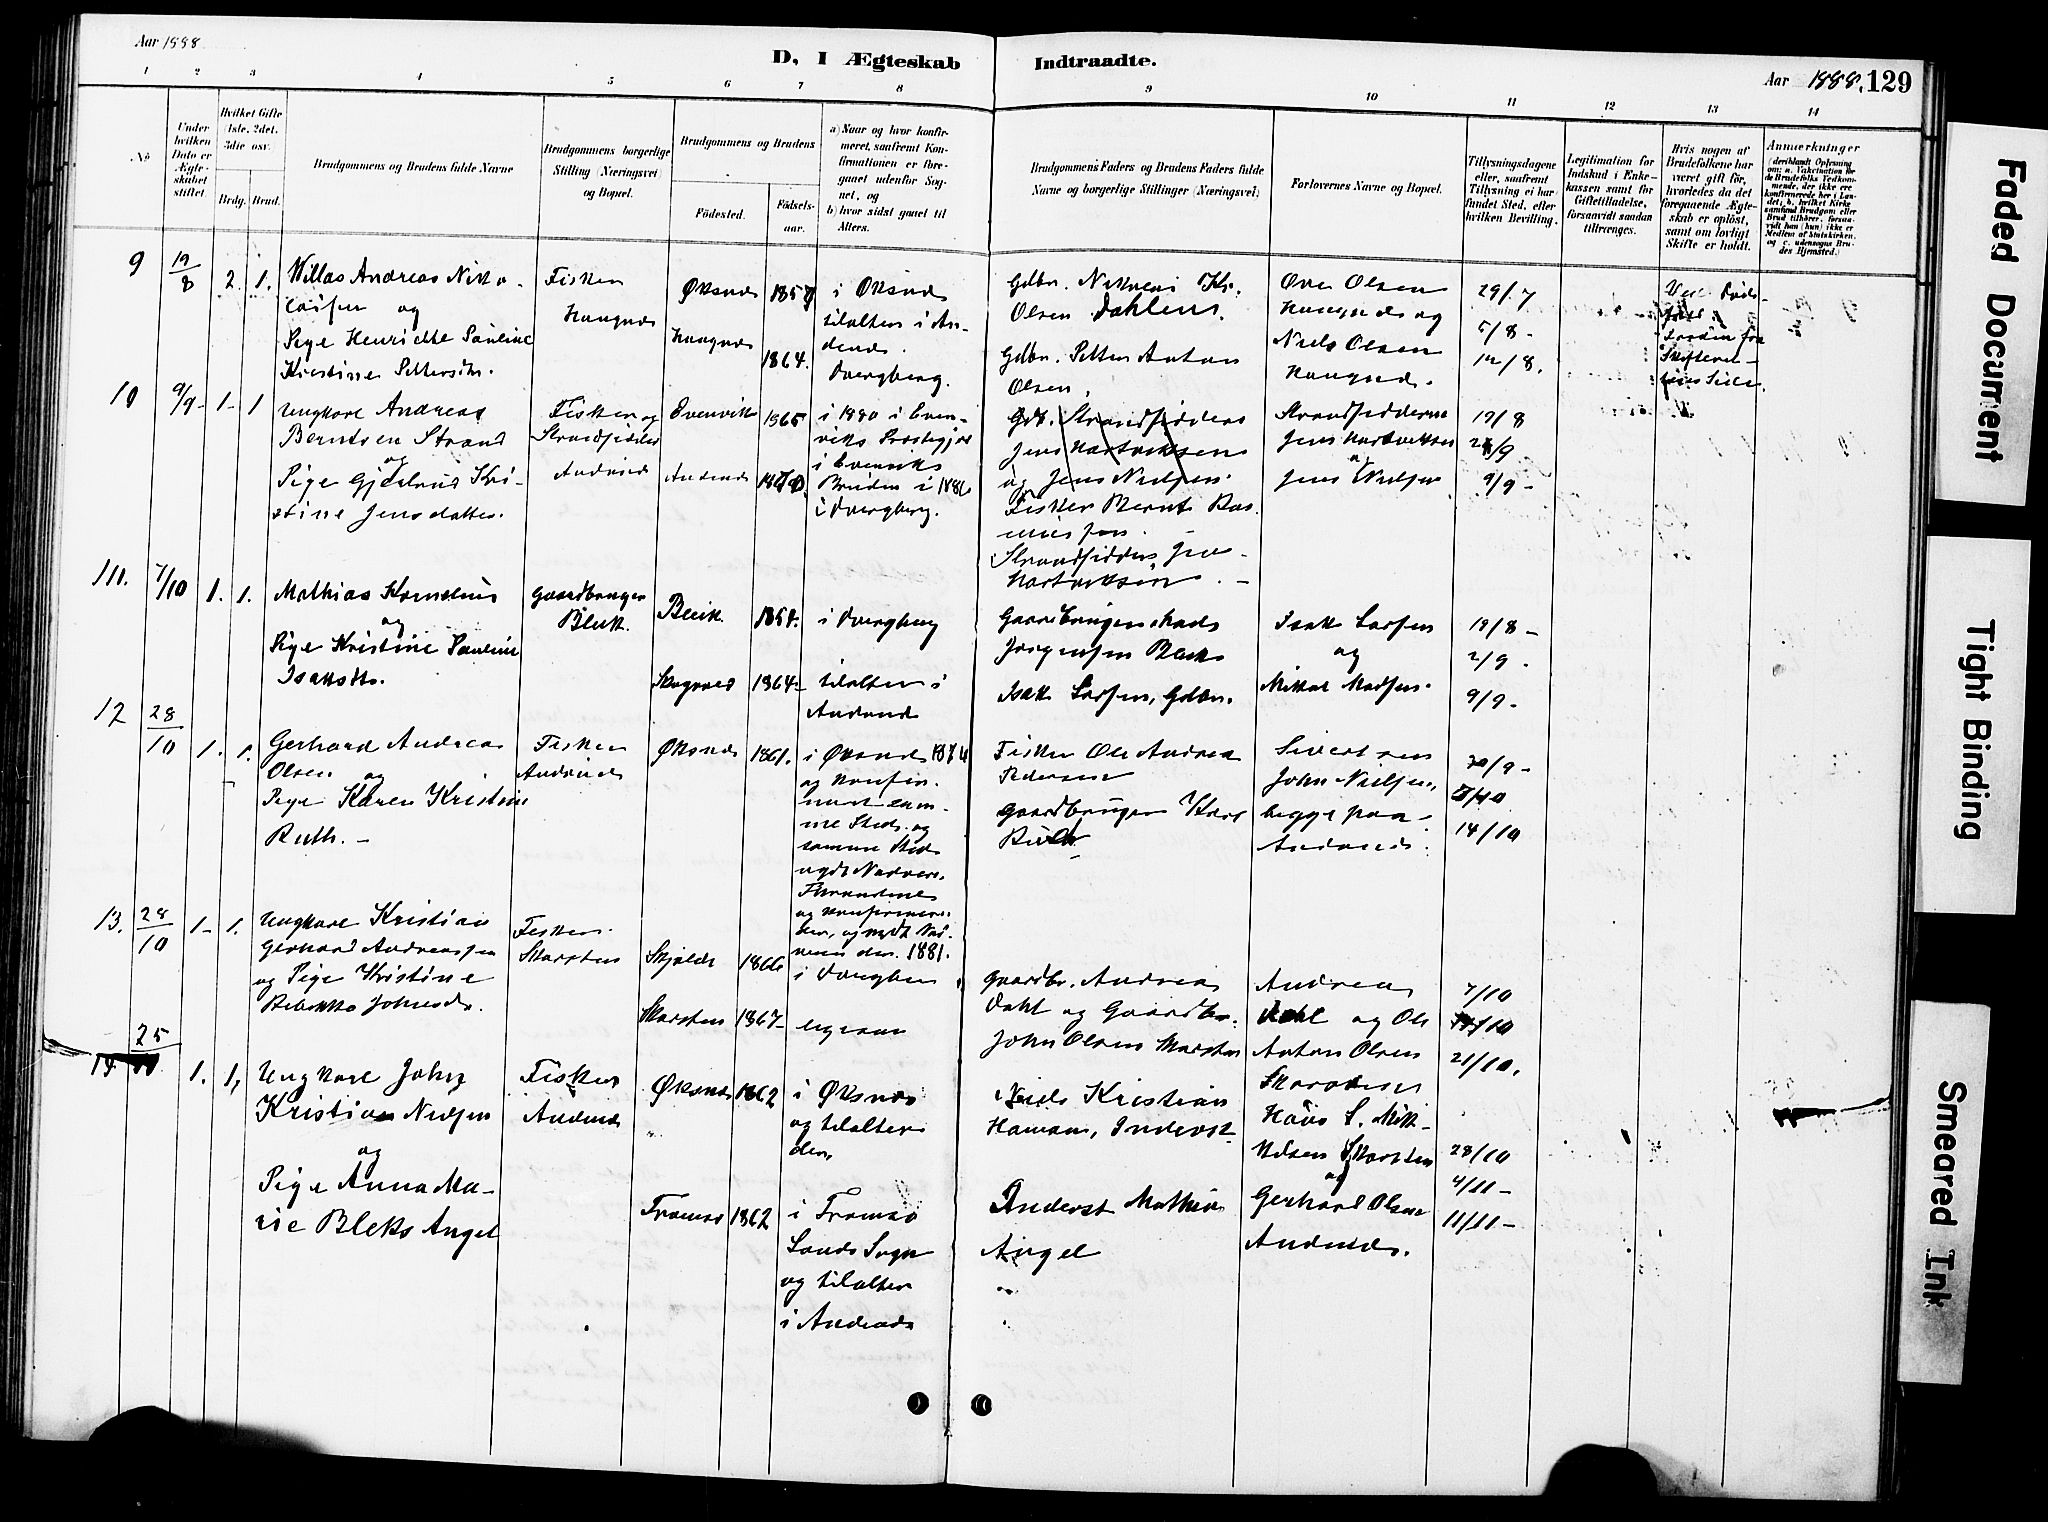 Aar 1888
D, I Ægteskab
Indtraadte.
Aar 1888. 129
1 2 3 4 5 6 7 8 9 10 11 12 13 14
No
Under hvilken Dato er Ægteskabet stiftet.
Hvilket Gifte (1ste, 2det, 3die osv.
Brdg. Brud.
Brudgommens og Brudens fulde Navne
Brudgommens borgerlige Stilling (Næringsvei) og Bopæl.
Brudgommens og Brudens
Födested.
Födselsaar.
a) Naar og hvor konfirmeret, saafremt Konfirmationen er foregaaet udenfor Sognet, og
b) hvor sidst gaaet til Alters.
Brudgommens Faders og Brudens Faders fulde Navne og borgerlige Stillinger (Næringsvei)
Forlovernes Navne og Bopæl.
Tillysningsdagene eller, saafremt Tillysning ei har fundet Sted, efter hvilken Bevilling.
Legitimation for Indskud i Enkekassen samt for Giftetilladelse, forsaavidt saadan tiltrænges.
Hvis nogen af Brudefolkene har været gift før, hvorledes da det foregaaende Ægteskab er oplöst, samt om lovligt Skifte er holdt.
Anmærkninger
(deriblandt Oplysning om: a. Vakcination for de Brudefolks Vedkommende, der ikke ere konfirmerede her i Landet, b. hvilket Kirkesamfund Brudgom eller Brud tilhører, forsaavidt han (hun) ikke er Medlem af Statskirken, og c. udensogns Brudes Hjemsted.)
9
19/8
2. 1.
Willas Andreas Niko-
laisen og
Pige Henriette Pauline
Kristine Pettersdtr.
Fisker
Haugnes
Øksnes 1857
Haugnes
1864.
i Øksnes
tilalters i An-
denes.
Dvergberg.
Gdbr. Nikolai Kr.
Olsen Dahlens.
Gdbr. Petter Anton
Olsen.
Ove Olsen
Haugnes og
Niels Olsen
Haugnes.
29/7
5/8 -
12/8.
10
9/9 - 1 - 1
Ungkarl Andreas
Berntsen Strand
og
Pige Gjertrud Kri-
stine Jensdatter.
Fisker og
Strandsidder
Andenes
Evenvik 1865
Andenes
i 1880 i Even-
viks Præstegjeld
i Evenviks
Bruden i 1886
i Dvergberg.
Gdb. Strandsidders
Jens Hartviksen
og Jens Nielsen.
Fisker Bernt Ras-
mussen.
Strandsidder Jens
Hartviksen. -
Strandsidderne
Jens Hartviksen
Jens Nielsen
19/8
2/9
9/9 -
11.
7/10
1. 1.
Mathias Kornelius
og
Pige Kristine Pauline
Isaksdtr.
Gaardbruger
Bleik.
Bleik. 1854.
Skogvold 1864.
i Dverghberg
tilalters i
Andenes
Gaardbruger Mads
Jørgensen Bleik
Isak Larsen, Gdbr.
Isak Larsen
og
Mikal Madsen.
19/8 -
2/9.
9/9 -
12
28/10
1. 1.
Gerhard Andreas
Olsen og
Pige Karen Kristine
Ruth. -
Fisker
Andenes
Øksnes 1861.
i Øksnes
og konfir-
meret sam-
me Steds og
samme Steds
nydt Nadvere.
og konfirmere-
des, og nydt Nad-
veren der. 1881.
Fisker Ole Andreas
Pedersen
Gaardbruger
John Nielsen,
begge paa
Andenes.
30/9 -
7/10
14/10
13.
28/10
1 - 1.
Ungkarl Kristian
Gerhard Andreassen
og Pige Kristine
Rebekka Johnsdr.
Fisker.
Skarsten
Skjolde 1866
Skarsten 1867 -
i Dverghberg
ligesaa
Gaardbr. Andreas
Dahl og Gaardbr.
John Olsen Skarsten
Andreas
Dahl og Ole
Anton Olsen
7/10
14/10
21/10.
14
25
1. 1,
Ungkarl John
Kristian Nielsen
og
Pige Anna Ma-
rie Bleks Angel
Fisker
Andenes
Øksnes 1862
"
Tromsø 1862
i Øksnes
og tilalters
der,
i Tromsø
Lands Sogn
og tilalters
i Andenes
Niels Kristian
Haman, Inderst.
Inderst Mathias
Angel
Hans S. Mik-
kelsen Skarsten
og
Gerhard Olsen
Andenes.
28/10
4/11 -
11/11 -
Faded Document
Tight Binding
Smeared Ink